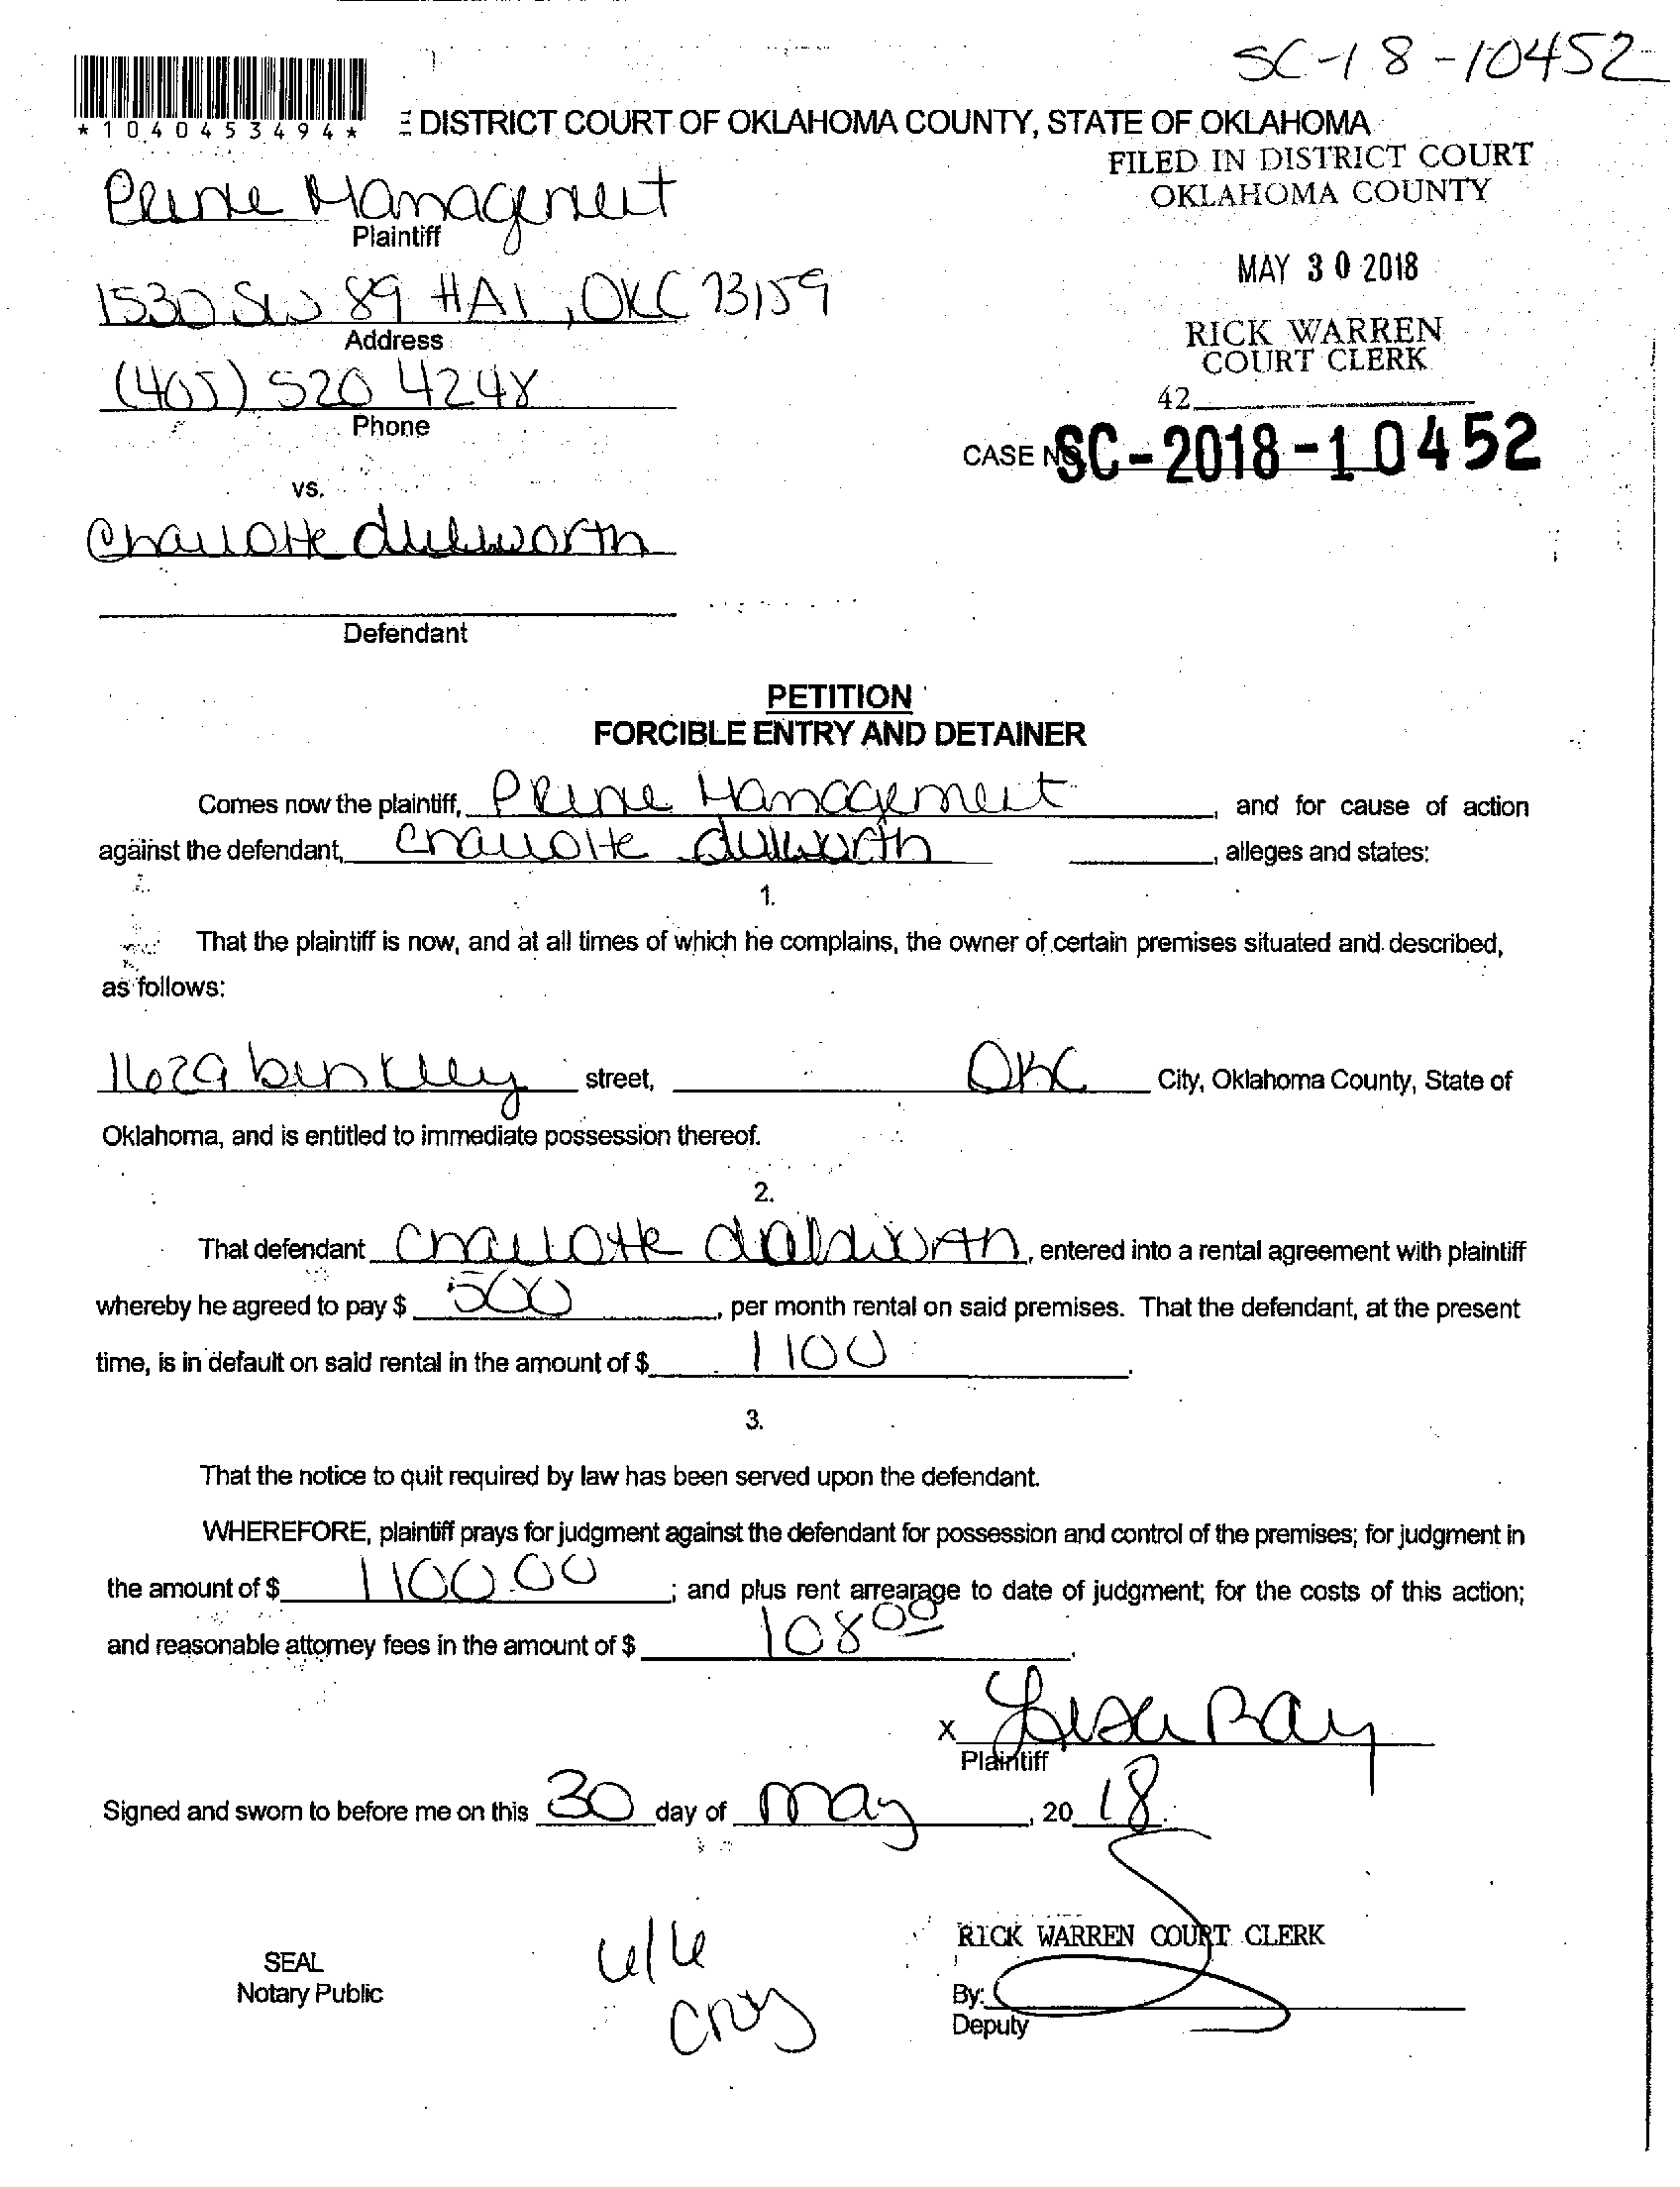 SC-18-10452
*1040453494*
DISTRICT COURT OF OKLAHOMA COUNTY, STATE OF OKLAHOMA
FILED IN DISTRICT COURT
OKLAHOMA COUNTY
Prime Management
Plaintiff
MAY 30 2018
1530 SW 89 #A1, OKC 73159
Address
RICK WARREN
COURT CLERK
(405) 520 4248
Phone
42
CASE NO. SC-2018-10452
vs.
Charlotte dulworth
Defendant
PETITION
FORCIBLE ENTRY AND DETAINER
Comes now the plaintiff, Prime Management, and for cause of action
against the defendant, Charlotte dulworth, alleges and states:
1.
That the plaintiff is now, and at all times of which he complains, the owner of certain premises situated and described,
as follows:
1629 binkley street, OKC City, Oklahoma County, State of
Oklahoma, and is entitled to immediate possession thereof.
2.
That defendant Charlotte, entered into a rental agreement with plaintiff
whereby he agreed to pay $ 500, per month rental on said premises. That the defendant, at the present
time, is in default on said rental in the amount of $ 1100.
3.
That the notice to quit required by law has been served upon the defendant.
WHEREFORE, plaintiff prays for judgment against the defendant for possession and control of the premises; for judgment in
the amount of $ 1100.00; and plus rent arrearage to date of judgment; for the costs of this action;
and reasonable attorney fees in the amount of $ 108 00.
x Lisa Ray
Plaintiff
Signed and sworn to before me on this 30 day of May, 20 18
RICK WARREN COURT CLERK
SEAL
Notary Public
By:
Deputy